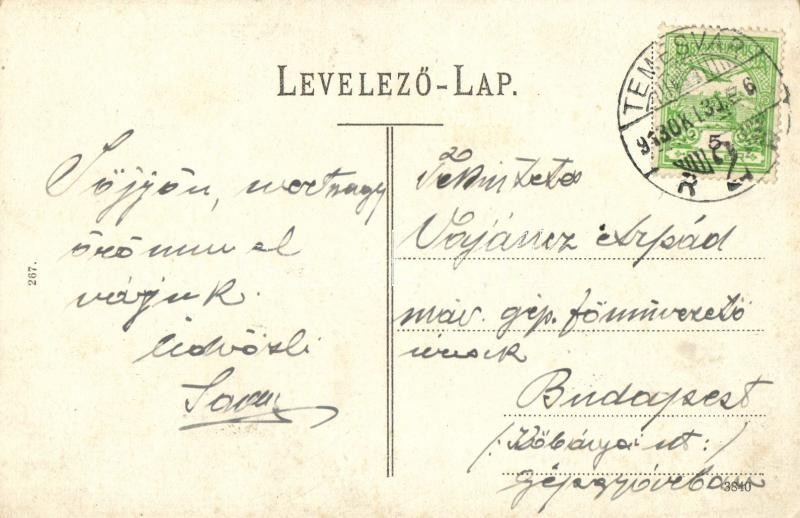 LEVELEZŐ-LAP.
TEMESVÁR
913 OKT 31
5
Jöjjön, mert nagy
örömmel
várjuk.
Üdvözli
267.
Tekintetes
Vajáncz Árpád
máv. gép. főművezető
úrnak
Budapest
/: Kőbányai út :/
gépgyárban
3840